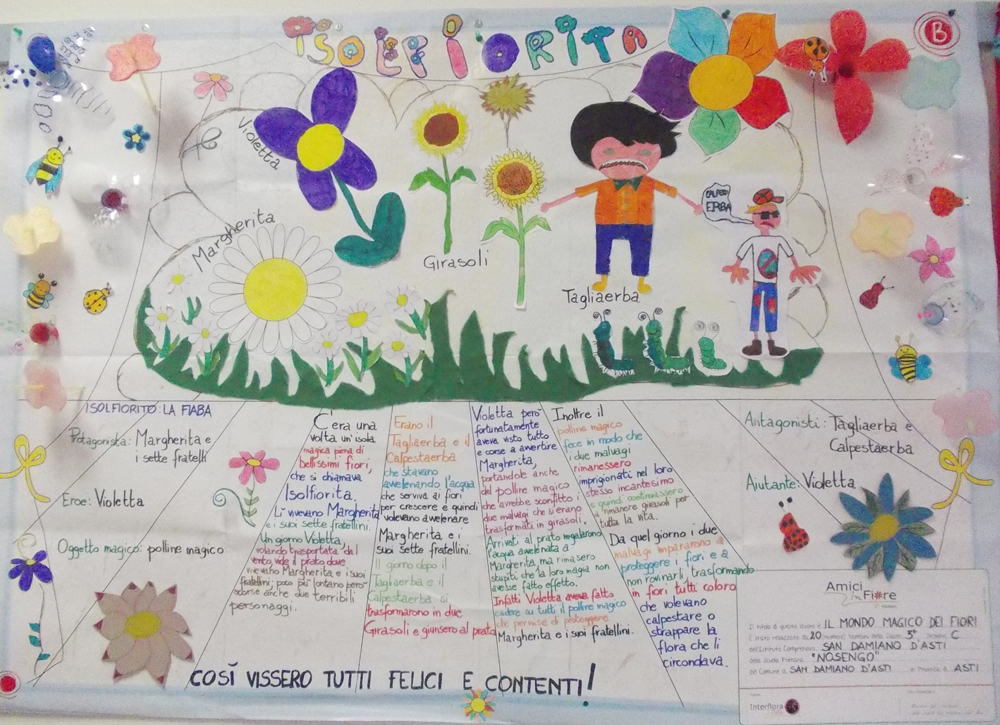 ISOLFIORITA
B
Violetta
Margherita
Girasoli
Tagliaerba
CALPESTA
ERBA
ISOLFIORITO: LA FIABA
Protagonista: Margherita e
i sette fratelli
Eroe: Violetta
Oggetto magico: polline magico
C'era una
volta un'isola
magica piena di
bellissimi fiori,
che si chiamava
Isolfiorita.
Lì vivevano Margherita
e i suoi sette fratellini.
Un giorno Violetta,
volando trasportata dal
vento, vide il prato dove
vivevano Margherita e i suoi
fratellini; poco più lontano però
scorse anche due terribili
personaggi.
Erano il
Tagliaerba e il
Calpestaerba
che stavano
avvelenando l'acqua
che serviva ai fiori
per crescere e quindi
volevano avvelenare
Margherita e i
suoi sette fratellini.
Il giorno dopo il
Tagliaerba e il
Calpestaerba si
trasformarono in due
Girasoli e giunsero al prato
Violetta però
fortunatamente
aveva visto tutto
e corse a avvertire
Margherita,
portandole anche
del polline magico
che avrebbe sconfitto i
due malvagi che si erano
trasformati in girasoli.
Arrivati al prato regalarono
l'acqua avvelenata a
Margherita, ma rimasero
stupiti che la loro magia non
avesse fatto effetto.
Infatti Violetta aveva fatto
cadere su tutti il polline magico
che permise di proteggere
Margherita e i suoi fratellini.
Inoltre il
polline magico
fece in modo che
i due malvagi
rimanessero
imprigionati nel loro
stesso incantesimo
e quindi continuassero a
rimanere girasoli per
tutta la vita.
Da quel giorno i due
malvagi impararono a
proteggere i fiori e a
non rovinarli, trasformando
in fiori tutti coloro
che volevano
calpestare o
strappare la
flora che li
circondava.
Antagonisti: Tagliaerba e
Calpestaerba
Aiutante: Violetta
COSÌ VISSERO TUTTI FELICI E CONTENTI!
Amici
in Fiore
Il titolo di questo lavoro è IL MONDO MAGICO DEI FIORI
È stato realizzato da 20 bambini della Classe 3ª Sezione C
dell'Istituto Comprensivo SAN DAMIANO D'ASTI
della Scuola Primaria "NOSENGO"
del Comune di SAN DAMIANO D'ASTI in Provincia di ASTI
Interflora